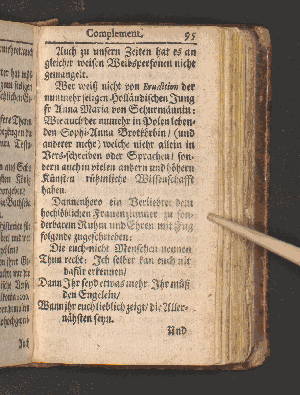 Complement. 95
Auch zu unsern Zeiten hat es an
gleichen weisen Weibspersonen nicht
gemangelt.
Wer weiß nicht von Erudition der
nunmehr seligen Holländischen Jung
fr Anna Maria von Schurmannin:
Wie auch der numehr in Polen leben-
den Sophi-Anna / (und
anderer mehr) welche nicht allein in
Vers-schreiben oder Sprachen / son-
dern auch in vielen andern und höhern
Künsten rühmliche Wissenschafft
haben.
Dannenhero ein Verliebter dem
hochlöblichen Frauenzimmer zu son-
derbaren Ruhm und Ehren mit Fug
folgende zugeschrieben:
Die euch nicht Menschen nennen
Thun recht: Ich selber kan euch nit
dafür erkennen /
Dann Ihr seyd etwas mehr. Ihr müst
den Engeln /
Wann ihr euch lieblich zeigt / die Aller-
nähsten seyn.
Und